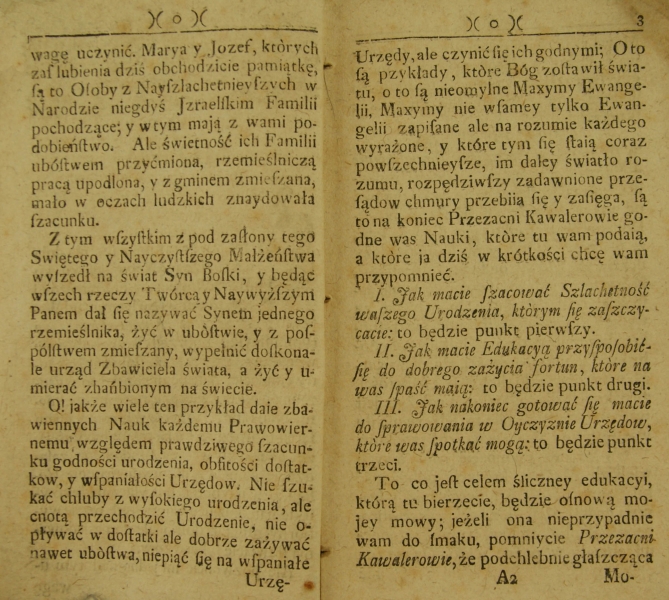 )( o )(
wagę uczynić. Marya y Jozef, ktȯrych
zaſlubienia dziś obchodzicie pamiątkę,
ſą to Oſoby z Nayſzlachetnieyſzych w
Narodzie niegdyś Jzraelſkim Familii
pochodzące; y w tym mają z wami po-
dobieńſtwo. Ale świetność ich Familii
ubȯſtwem przyćmiona, rzemieślniczą
pracą upodlona, y z gminem zmieſzana,
mało w oczach ludzkich znaydowała
ſzacunku.
Z tym wſzyſtkim z pod zaſłony tego
Swiętego y Nayczyſtſzego Małżeńſtwa
wyſzedł na świat Syn Boſki, y będąc
wſzech rzeczy Twȯrcą y Naywyżſzym
Panem dał ſię nazywać Synem jednego
rzemieślnika, żyć w ubȯſtwie, y z poſ-
pȯlſtwem zmieſzany, wypełnić doſkona-
le urząd Zbawiciela świata, a żyć y u-
mierać zhańbionym na świecie.
O! jakże wiele ten przykład daie zba-
wiennych Nauk każdemu Prawowier-
nemu względem prawdziwego ſzacun-
ku godności urodzenia, obfitości doſtat-
kȯw, y wſpaniałości Urzędow. Nie ſzu-
kać chluby z wyſokiego urodzenia, ale
cnotą przechodzić Urodzenie, nie o-
pływać w doſtatki ale dobrze zażywać
nawet ubȯſtwa, niepiąć ſię na wſpaniałe
Urzę-
)( o )( 3
Urzędy, ale czynić ſię ich godnymi; Oto
ſą pzykłady, ktȯre Bȯg zoſtawił świa-
tu, o to ſą nieomylne Maxymy Ewange-
lii, Maxymy nie wſamey tylko Ewan-
gelii zapiſane ale na rozumie każdego
wyrażone, y ktȯre tym ſię ſtaią coraz
powſzechnieyſze, im daley światło ro-
zumu, rozpędziwſzy zadawnione prze-
ſądow chmury przebiia ſię y zaſięga, ſą
to na koniec Przezacni Kawalerowie go-
dne was Nauki, ktȯre tu wam podaią,
a ktȯre ja dziś w krȯtkości chcę wam
przypomnieć.
I. Jak macie ſzacować Szlachetność
waſzego Urodzenia, ktȯrym ſię zaſzczy-
cacie: to będzie punkt pierwſzy.
II. Jak macie Edukacyą przyſpoſobić-
ſię do dobrego zażycia fortun, ktȯre na
was ſpaść maią: to będzie punkt drugi.
III. Jak nakoniec gotować ſię macie
do ſprawowania w Oyczyznie Urzędow,
ktȯre was ſpotkać mogą: to będzie punkt
trzeci.
To co jeſt celem śliczney edukacyi,
ktȯrą tu bierzecie, będzie oſnową mo-
jey mowy; jeżeli ona nieprzypadnie
wam do ſmaku, pomniycie Przezacni-
Kawalerowie, że podchlebnie głaſzcząca
A2 Mo-